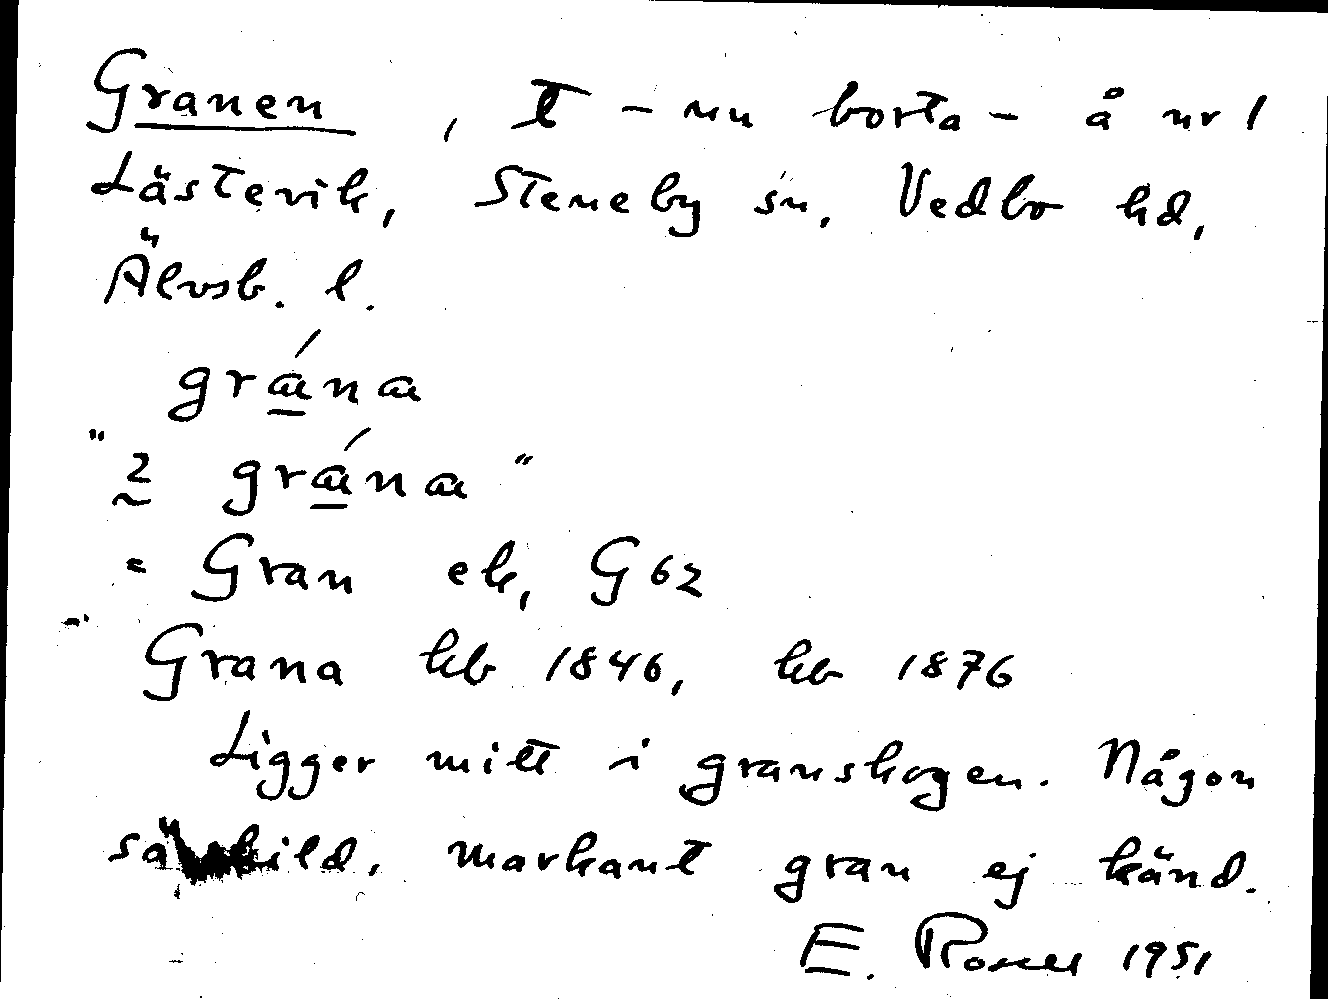 Granen, t - nu borta - å nr 1
Lästervik, Steneby sn, Vedbo hd,
Älvsb. l.
grána
"2 grána"
= Gran ek, G 62
Grana hb 1846, kb 1876
Ligger mitt i granskogen. Någon
särskild, markant gran ej känd.
E. Rosell 1951